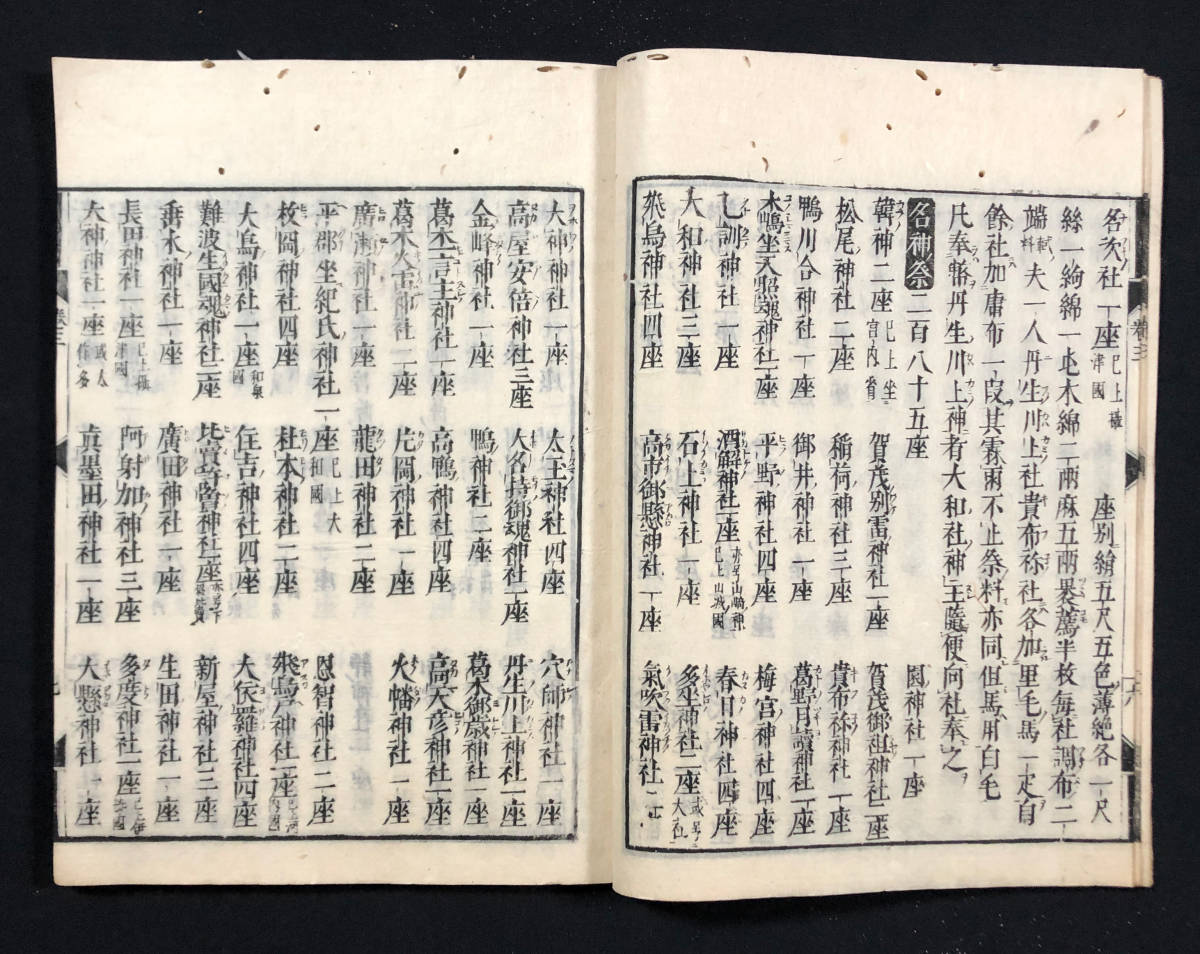 名次社一座 已上攝津國 座別絹五尺五色薄絁各一尺
絲一絇綿一屯木綿二兩麻五兩裹薦半枚每社調布二
端 軾料 夫一人丹生川上社貴布祢社各加黑毛馬一疋自
餘社加庸布一段其霖雨不止祭料亦同但馬用白毛
凡奉幣丹生川上神者大和社神主隨便向社奉之
名神祭 二百八十五座
園神社一座
韓神二座 已上坐宮内省 賀茂別雷神社一座 賀茂御祖神社二座
松尾神社二座 稻荷神社三座 貴布祢神社一座
鴨川合神社一座 御井神社一座 葛野月讀神社一座
木嶋坐天照魂神社一座 平野神社四座 梅宮神社四座
乙訓神社一座 酒解神社一座 亦号山崎神已上山城國 春日神社四座
大和神社三座 石上神社一座 多坐神社二座 或号大社
飛鳥神社四座 高市御縣神社一座 氣吹雷神社二座
大神神社一座 太玉神社四座 穴師神社一座
高屋安倍神社三座 大名持御魂神社一座 丹生川上神社一座
金峰神社一座 鴨神社二座 葛木御歳神社一座
葛木一言主神社一座 高鴨神社四座 高天彦神社一座
葛木火雷神社二座 片岡神社一座 火幡神社一座
廣瀬神社一座 龍田神社二座
平郡坐紀氏神社一座 已上大和國 恩智神社二座
枚岡神社四座 杜本神社二座 飛鳥戸神社一座 已上河内國
大鳥神社一座 和泉國 住吉神社四座 大依羅神社四座
難波生國魂神社二座 比賣許曾神社一座 新屋神社三座
垂水神社一座 廣田神社一座 生田神社一座
長田神社一座 已上攝津國 阿射加神社三座 多度神社一座 已上伊勢國
大神神社一座 眞墨田神社一座 大縣神社一座